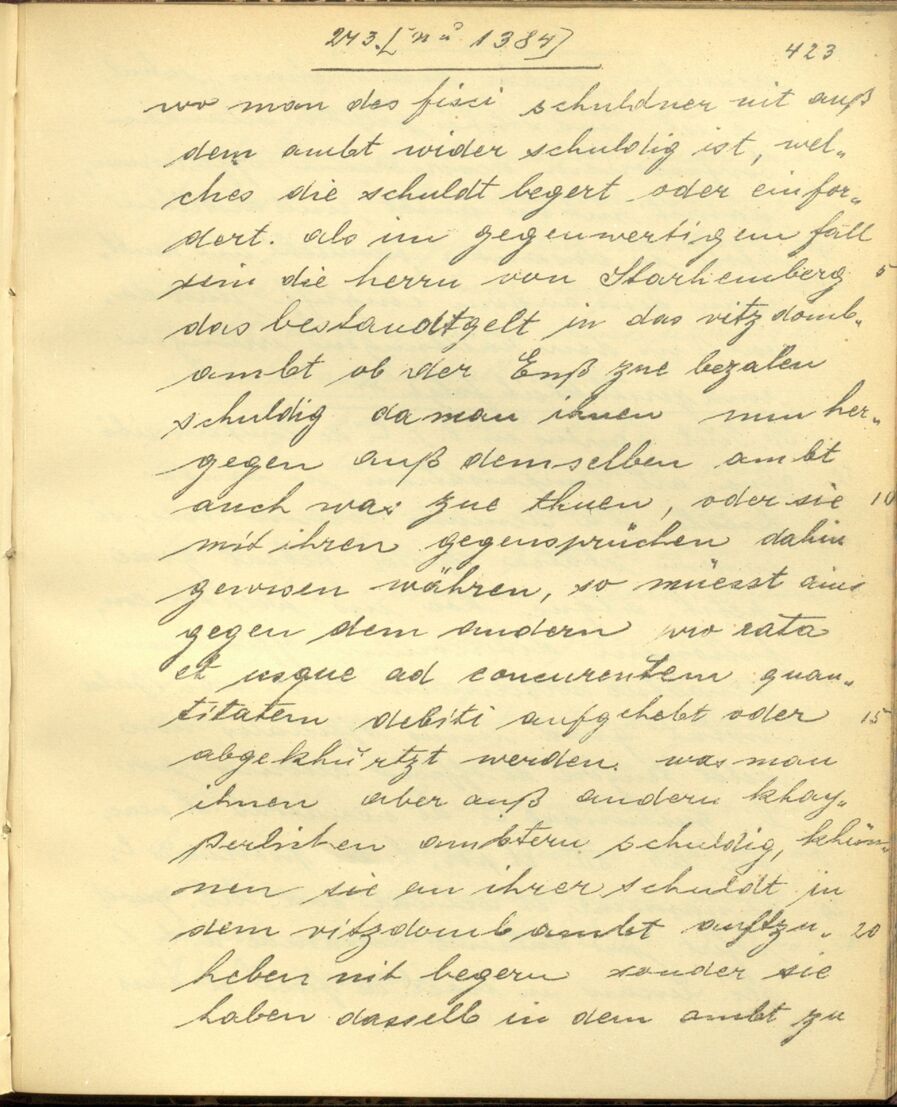 243. [nº 1384]
423
wo man des fisci schuldner nit auß
dem ambt wider schuldig ist, wel„
ches die schuldt begert oder einfor„
dert. als im gegenwertigem fall
sein die herrn von Starhemberg 5
das bestandtgelt in das vitzdomb„
ambt ob der Enß zue bezalen
schuldig da man ihnen nun her„
gegen auß demselben ambt
auch was zue thuen, oder sie 10
mit ihren gegensprüchen dahin
gewisen währen, so müesst ains
gegen dem andern pro rata
et usque ad concurentem quan„
titatem debiti aufgehebt oder 15
abgekhürtzt werden. was man
ihnen aber auß andern khay„
serlichen ambtern schuldig, khön„
nen sie an ihrer schuldt in
dem vitzdombambt auftzu„ 20
heben nit begern sonder sie
haben dasselb in dem ambt zu